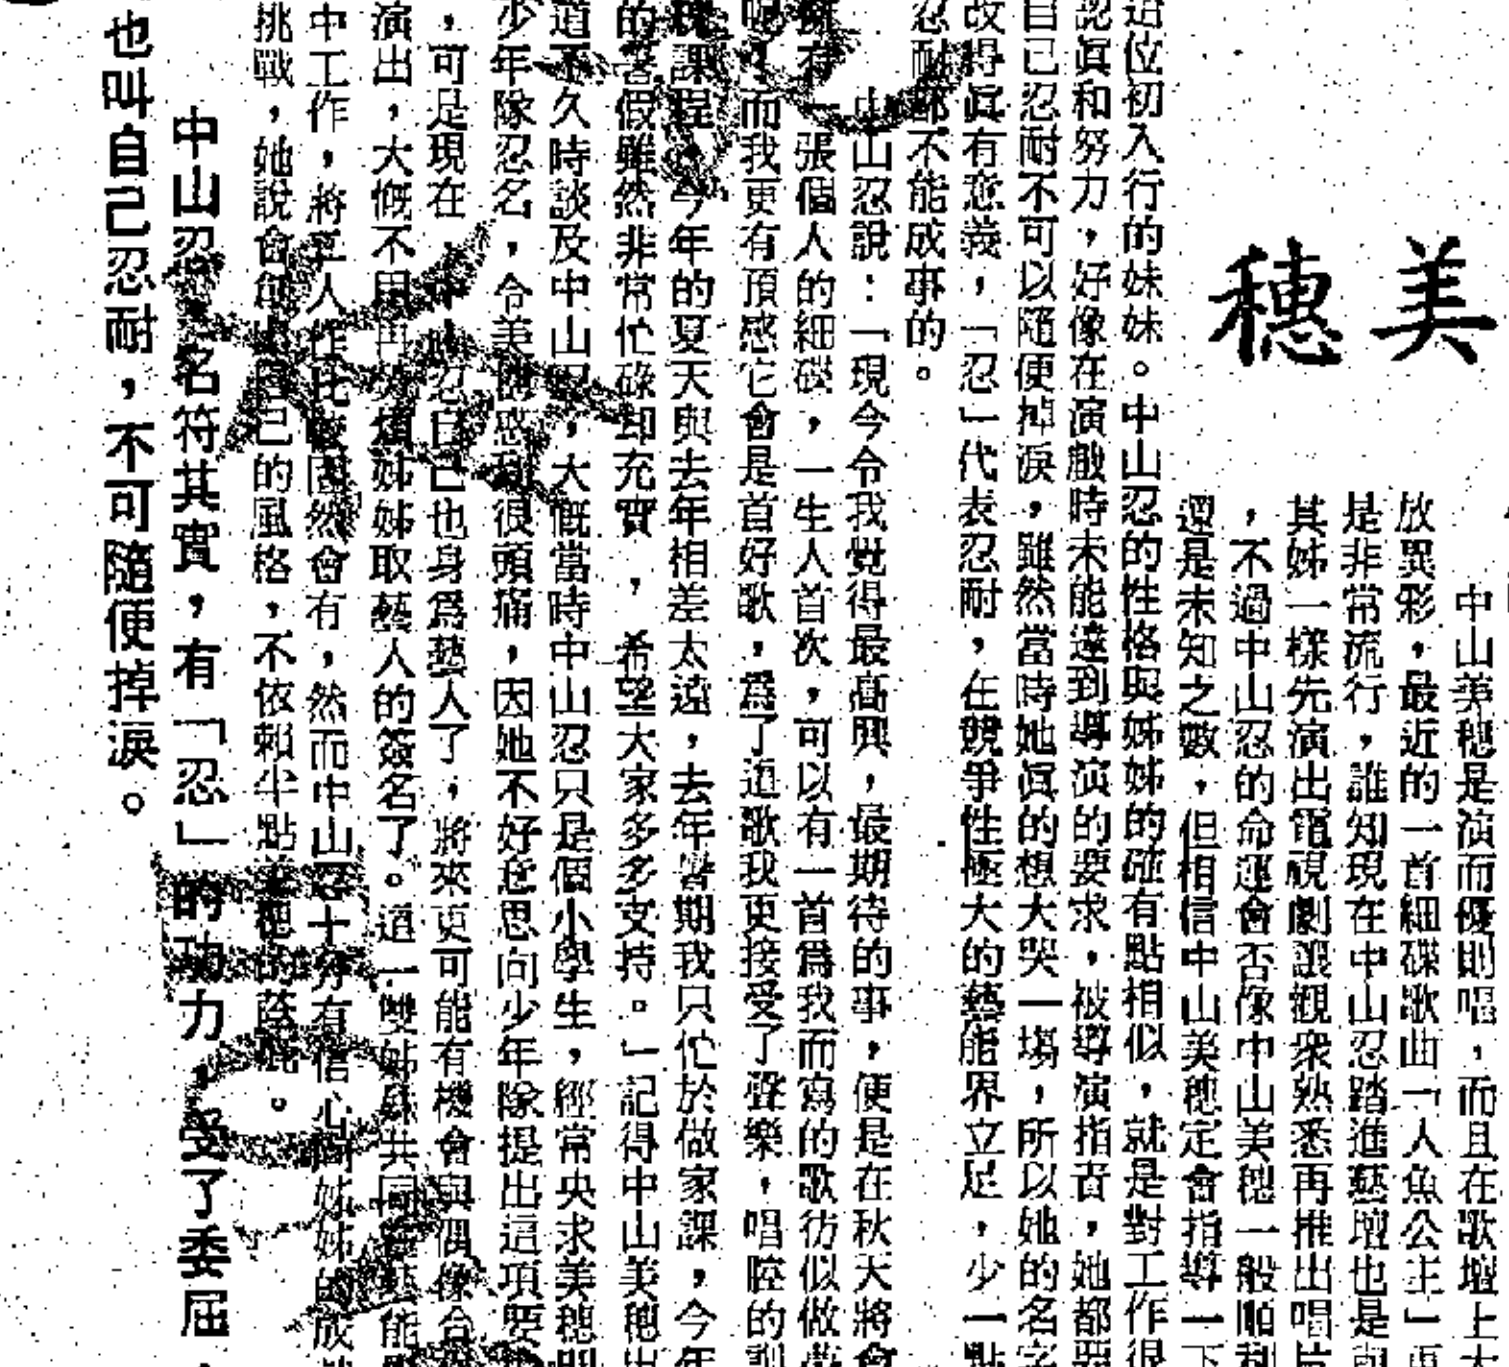 美穗
中山美穗是演而優則唱，而且在歌壇上大
放異彩，最近的一首細碟歌曲「人魚公主」更
是非常流行，誰知現在中山忍踏進藝壇也是與
其姊一樣先演出電視劇讓觀衆熟悉再推出唱片
，不過中山忍的命運會否像中山美穗一般順利
還是未知之數，但相信中山美穗定會指導一下
這位初入行的妹妹。中山忍的性格與姊姊的確有點相似，就是對工作很
認眞和努力，好像在演戲時未能達到導演的要求，被導演指責，她都要
自己忍耐不可以隨便掉淚，雖然當時她眞的想大哭一塲，所以她的名字
改得眞有意義，「忍」代表忍耐，在競爭性極大的藝能界立足，少一點
忍耐都不能成事的。
中山忍說：「現今令我覺得最高興，最期待的事，便是在秋天將會
擁有一張個人的細碟，一生人首次，可以有一首爲我而寫的歌彷似做夢
呢！而我更有預感它會是首好歌，爲了這歌我更接受了聲樂，唱腔的訓
課程，今年的夏天與去年相差太遠，去年暑期我只忙於做家課，今年
的暑假雖然非常忙碌却充實，希望大家多多支持。」記得中山美穗出
道不久時談及中山忍，大概當時中山忍只是個小學生，經常央求美穗
少年隊忍名，令美穗感到很頭痛，因她不好意思向少年隊提出這項要
，可是現在，中山忍自己也身爲藝人了，將來更可能有機會與偶像合
演出，大概不用再勞煩姊姊取藝人的簽名了。這一雙姊妹共同
中工作，將二人作比較固然會有，然而中山忍十分有信心向姊姊的成
挑戰，她說會創出自己的風格，不依賴半點美穗的蔭庇。
中山忍，名符其實，有「忍」的功力，受了委屈，
也叫自己忍耐，不可隨便掉淚。